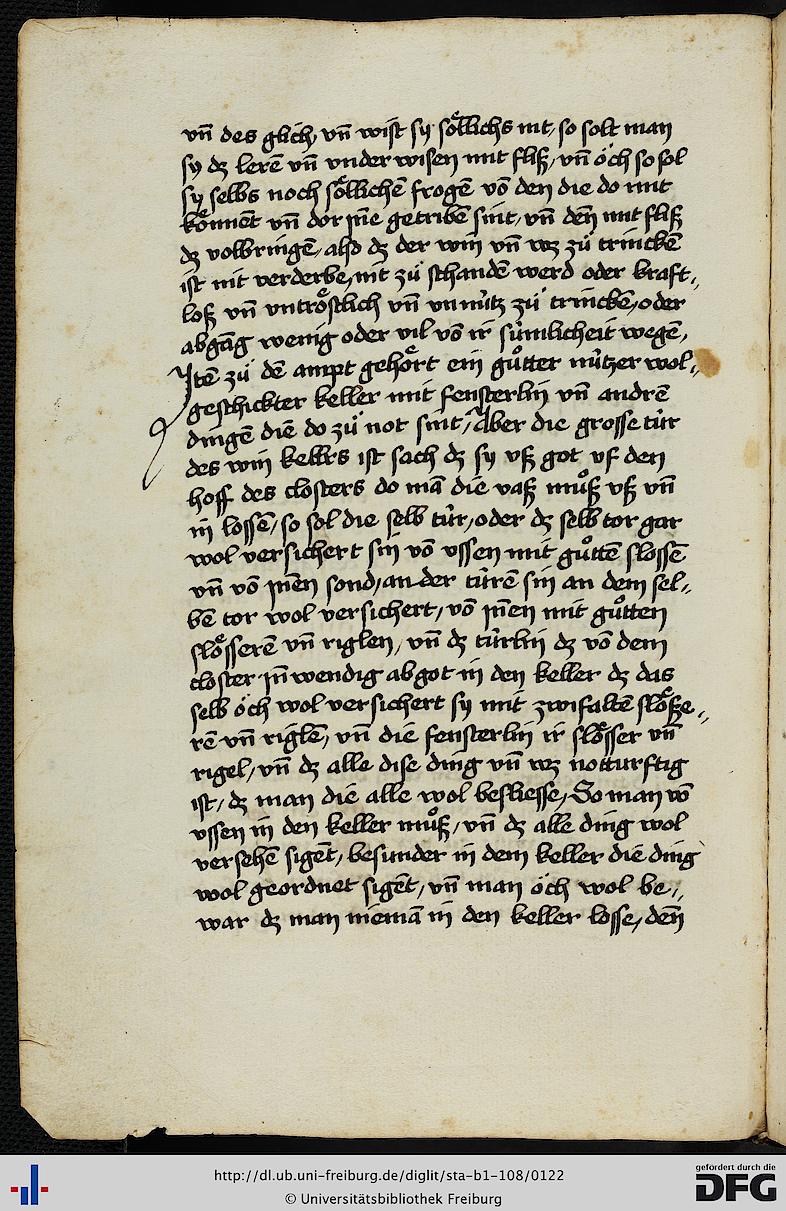 vn̄ des glich, vn̄ wist sy soͤllichs nit, so solt man
sy dz lerē vn̄ vnder wisen mit fliß, vn̄ öch so sol
sy selbs noch soͤllichē frogē vō den die do mit
koͤnnēt vn̄ dor jn̄e getribē sint, vn̄ den̄ mit fliß
dz volbringē, also dz der win vn̄ wz zuͦ trinckē
ist nit verderbe, nit zuͦ schandē werd oder kraft„
loß vn̄ vntroͤstlich vn̄ vnnu̍tz zuͦ trinckē, oder
abgāg wenig oder vil vō ir su̍mlicheit wegē,
Itē zuͦ dē ampt gehoͤrt ein guͦtter nu̍tzer wol„
geschickter keller mit fensterlin vn̄ andrē
dingē die do zuͦ not sint, Aber die grosse tu̍r
des win kellers ist sach dz sy vß got vf den
hoff des closters do mā die vaß muͦß vß vn̄
in lossē, so sol die selb tu̍r, oder dz selb tor gar
wol versichert sin vō vssen mit guͦttē slossē
vn̄ vō jnēn sond, an der tu̍rē sin an dem sel„
bē tor wol versichert, vō jnēn mit guͦtten
sloͤsserē vn̄ riglen, vn̄ dz tu̍rlin dz vō dem
closter jn̄wendig abgot in den keller dz das
selb öch wol versichert sy mit zwifaltē sloͤße„
rē vn̄ riglē, vn̄ die fensterlin ir sloͤsser vn̄
rigel, vn̄ dz alle dise ding vn̄ wz notturftig
ist, dz man die alle wol besliesse, So man vō
vssen in den keller muͦß, vn̄ dz alle ding wol
versehē sigēt, besunder in dem keller die ding
wol geordnet sigēt, vn̄ man öch wol be„
war dz man niemā in den keller losse, den̄
http://dl.ub.uni-freiburg.de/diglit/sta-b1-108/0122
© Universitätsbibliothek Freiburg
gefördert durch die
DFG